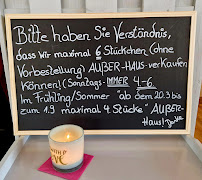 Bitte haben Sie Verständnis,
dass wir maximal 6 Stückchen (ohne
Vorbestellung) AUẞER-HAUS-verkaufen
können! (Sonntags-IMMER 4-6.
Im Frühling/Sommer "ab dem 20.3 bis
zum 1.9 maximal 4 Stücke" AUẞER-
Haus! Danke
LOVE